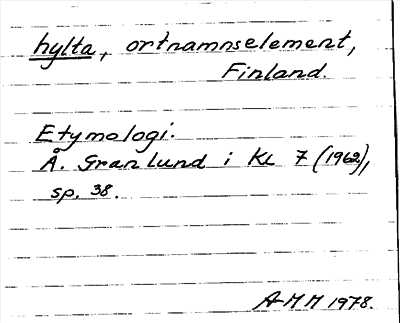 hylta, ortnamnselement,
Finland.
Etymologi.
Å. Granlund i KL 7 (1962),
sp. 38.
AMM 1978.